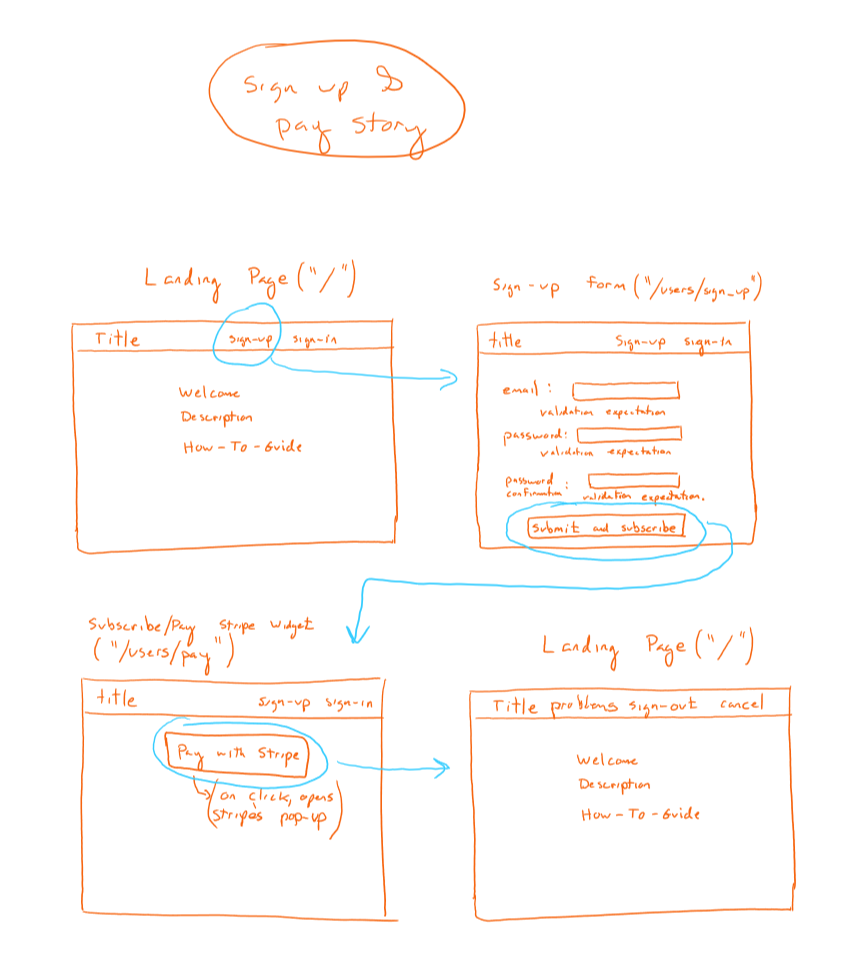 Sign up &
pay story
Landing Page ("/")
Title sign-up sign-in
Welcome
Description
How-To-Guide
Sign-up form ("/users/sign_up")
title Sign-up sign-in
email :
validation expectation
password:
validation expectation
password
confirmation :
validation expectation.
Submit and subscribe
Subscribe/Pay Stripe widget
("/users/pay")
title sign-up sign-in
Pay with Stripe
(on click, opens
stripes pop-up)
Landing Page ("/")
Title problems sign-out cancel
Welcome
Description
How-To-Guide